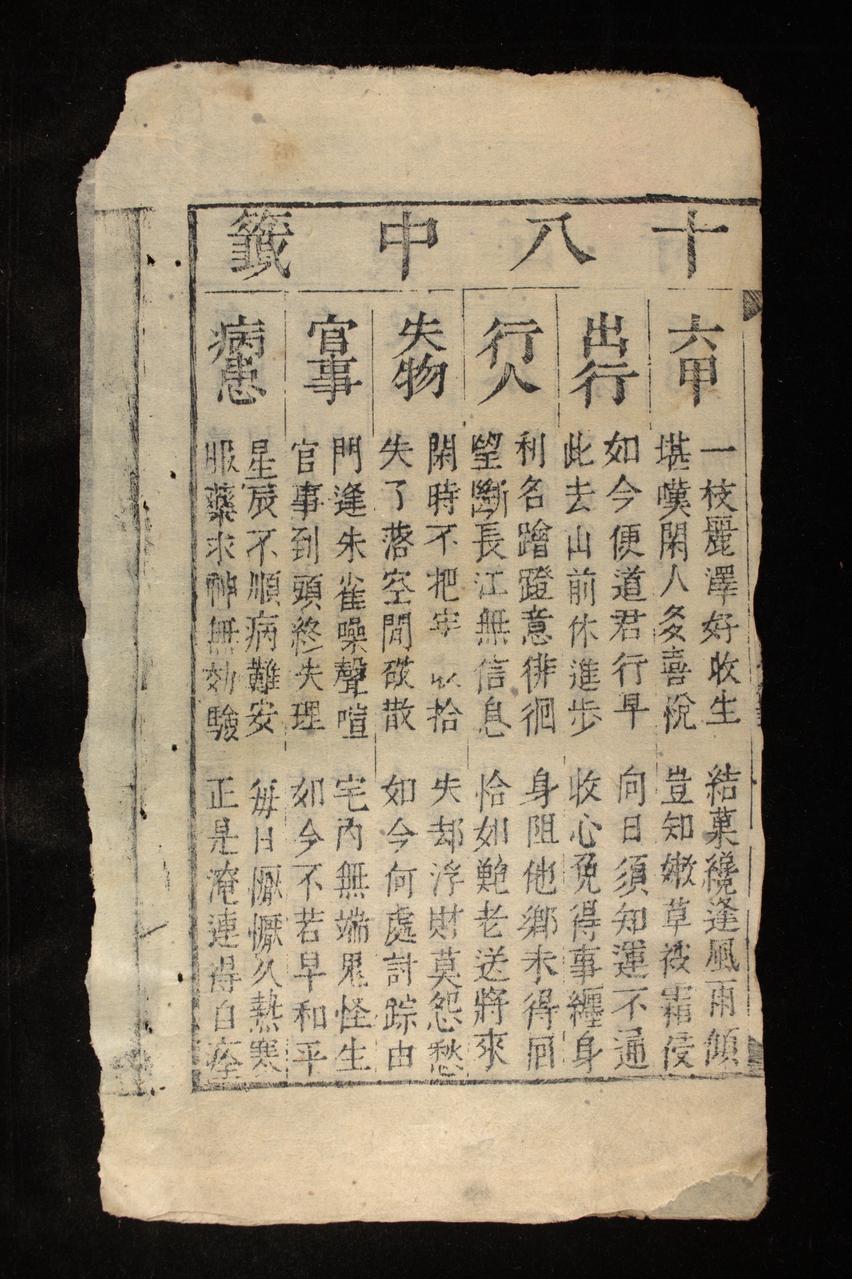 十八中籤
六甲
一枝麗澤好收生 結菓纔逢風雨傾
堪嘆閑人多喜悅 豈知嫩草被霜侵
出行
如今便道君行早 向日須知運不通
此去山前休進步 收心免得事纏身
行人
利名蹭蹬意徘徊 身阻他鄉未得回
望斷長江無信息 恰如艄老送將來
失物
閑時不把牢収拾 失却浮財莫怨愁
失了落空閒破散 如今何處討踪由
官事
門逢朱雀噪聲喧 宅內無端鬼怪生
官事到頭終失理 如今不若早和平
病患
星辰不順病難安 每日懨懨久熱寒
服藥求神無効驗 正是淹連得自痊